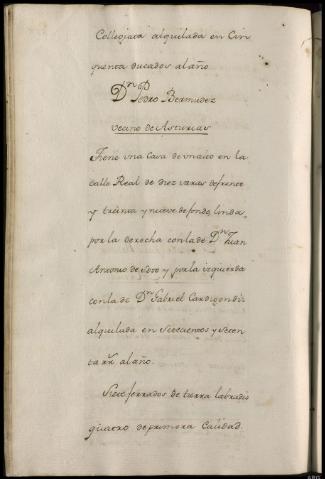 Collegiata alquilada en Cin
quenta ducados al año
Dn Pedro Bermudez
vecino de Asturias
Tiene una Casa de un alto en la
Calle Real de diez varas de frente
y treinta y nueve de fondo, linda
por la derecha con la de Dn Juan
Antonio de y por la izquierda
con la de Dn Gabriel
alquilada en Setecientos y Seten
ta rr.s al año.
Siete ferrados de tierra labradio
quatro de primera Calidad.